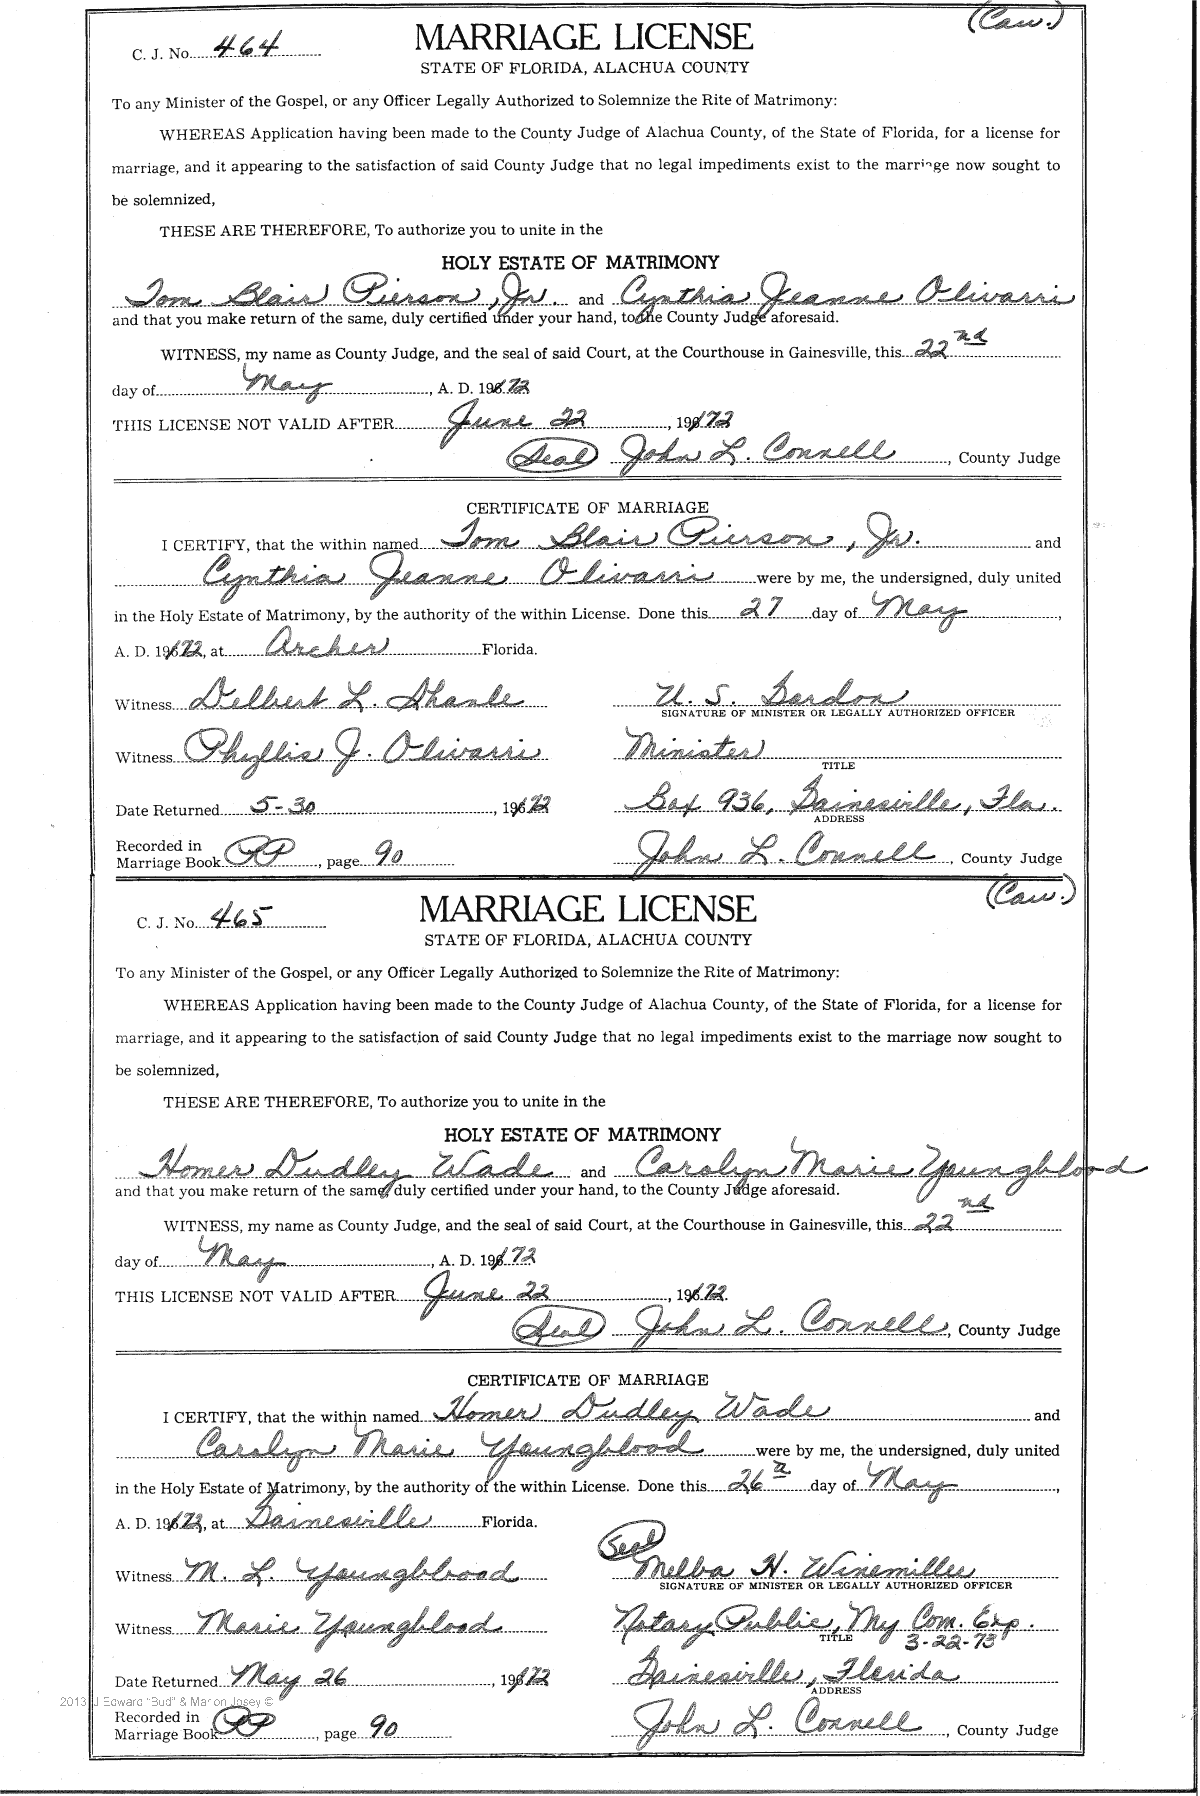 (Cau.)
C. J. No. 464 MARRIAGE LICENSE
STATE OF FLORIDA, ALACHUA COUNTY
To any Minister of the Gospel, or any Officer Legally Authorized to Solemnize the Rite of Matrimony:
WHEREAS Application having been made to the County Judge of Alachua County, of the State of Florida, for a license for
marriage, and it appearing to the satisfaction of said County Judge that no legal impediments exist to the marriage now sought to
be solemnized,
THESE ARE THEREFORE, To authorize you to unite in the
HOLY ESTATE OF MATRIMONY
Tom Blair Pierson, Jr. and Cynthia Jeanne Olivarri
and that you make return of the same, duly certified under your hand, to the County Judge aforesaid.
WITNESS, my name as County Judge, and the seal of said Court, at the Courthouse in Gainesville, this 22nd
day of May, A. D. 1972
THIS LICENSE NOT VALID AFTER June 22, 1972
(Seal) John L. Connell, County Judge
CERTIFICATE OF MARRIAGE
I CERTIFY, that the within named Tom Blair Pierson, Jr. and
Cynthia Jeanne Olivarri were by me, the undersigned, duly united
in the Holy Estate of Matrimony, by the authority of the within License. Done this 27 day of May,
A. D. 1972, at Archer Florida.
Witness Delbert L. Shanle U. S. Gordon
SIGNATURE OF MINISTER OR LEGALLY AUTHORIZED OFFICER
Witness Phyllis J. Olivarri Minister
TITLE
Date Returned 5-30, 1972 Box 936, Gainesville, Fla.
ADDRESS
Recorded in
Marriage Book PP, page 90 John L. Connell, County Judge
(Cau.)
C. J. No. 465 MARRIAGE LICENSE
STATE OF FLORIDA, ALACHUA COUNTY
To any Minister of the Gospel, or any Officer Legally Authorized to Solemnize the Rite of Matrimony:
WHEREAS Application having been made to the County Judge of Alachua County, of the State of Florida, for a license for
marriage, and it appearing to the satisfaction of said County Judge that no legal impediments exist to the marriage now sought to
be solemnized,
THESE ARE THEREFORE, To authorize you to unite in the
HOLY ESTATE OF MATRIMONY
Homer Dudley Wade and Carolyn Marie Youngblood
and that you make return of the same, duly certified under your hand, to the County Judge aforesaid.
WITNESS, my name as County Judge, and the seal of said Court, at the Courthouse in Gainesville, this 22nd
day of May, A. D. 1972
THIS LICENSE NOT VALID AFTER June 22, 1972.
(Seal) John L. Connell, County Judge
CERTIFICATE OF MARRIAGE
I CERTIFY, that the within named Homer Dudley Wade and
Carolyn Marie Youngblood were by me, the undersigned, duly united
in the Holy Estate of Matrimony, by the authority of the within License. Done this 26 day of May,
A. D. 1972, at Gainesville Florida.
(Seal)
Witness M. L. Youngblood Melba H. Winemiller
SIGNATURE OF MINISTER OR LEGALLY AUTHORIZED OFFICER
Witness Marie Youngblood Notary Public, My Com. Exp.
TITLE 3-22-73
Date Returned May 26, 1972 Gainesville, Florida
ADDRESS
2013 J Edward "Bud" & Marion Josey ©
Recorded in
Marriage Book PP, page 90 John L. Connell, County Judge